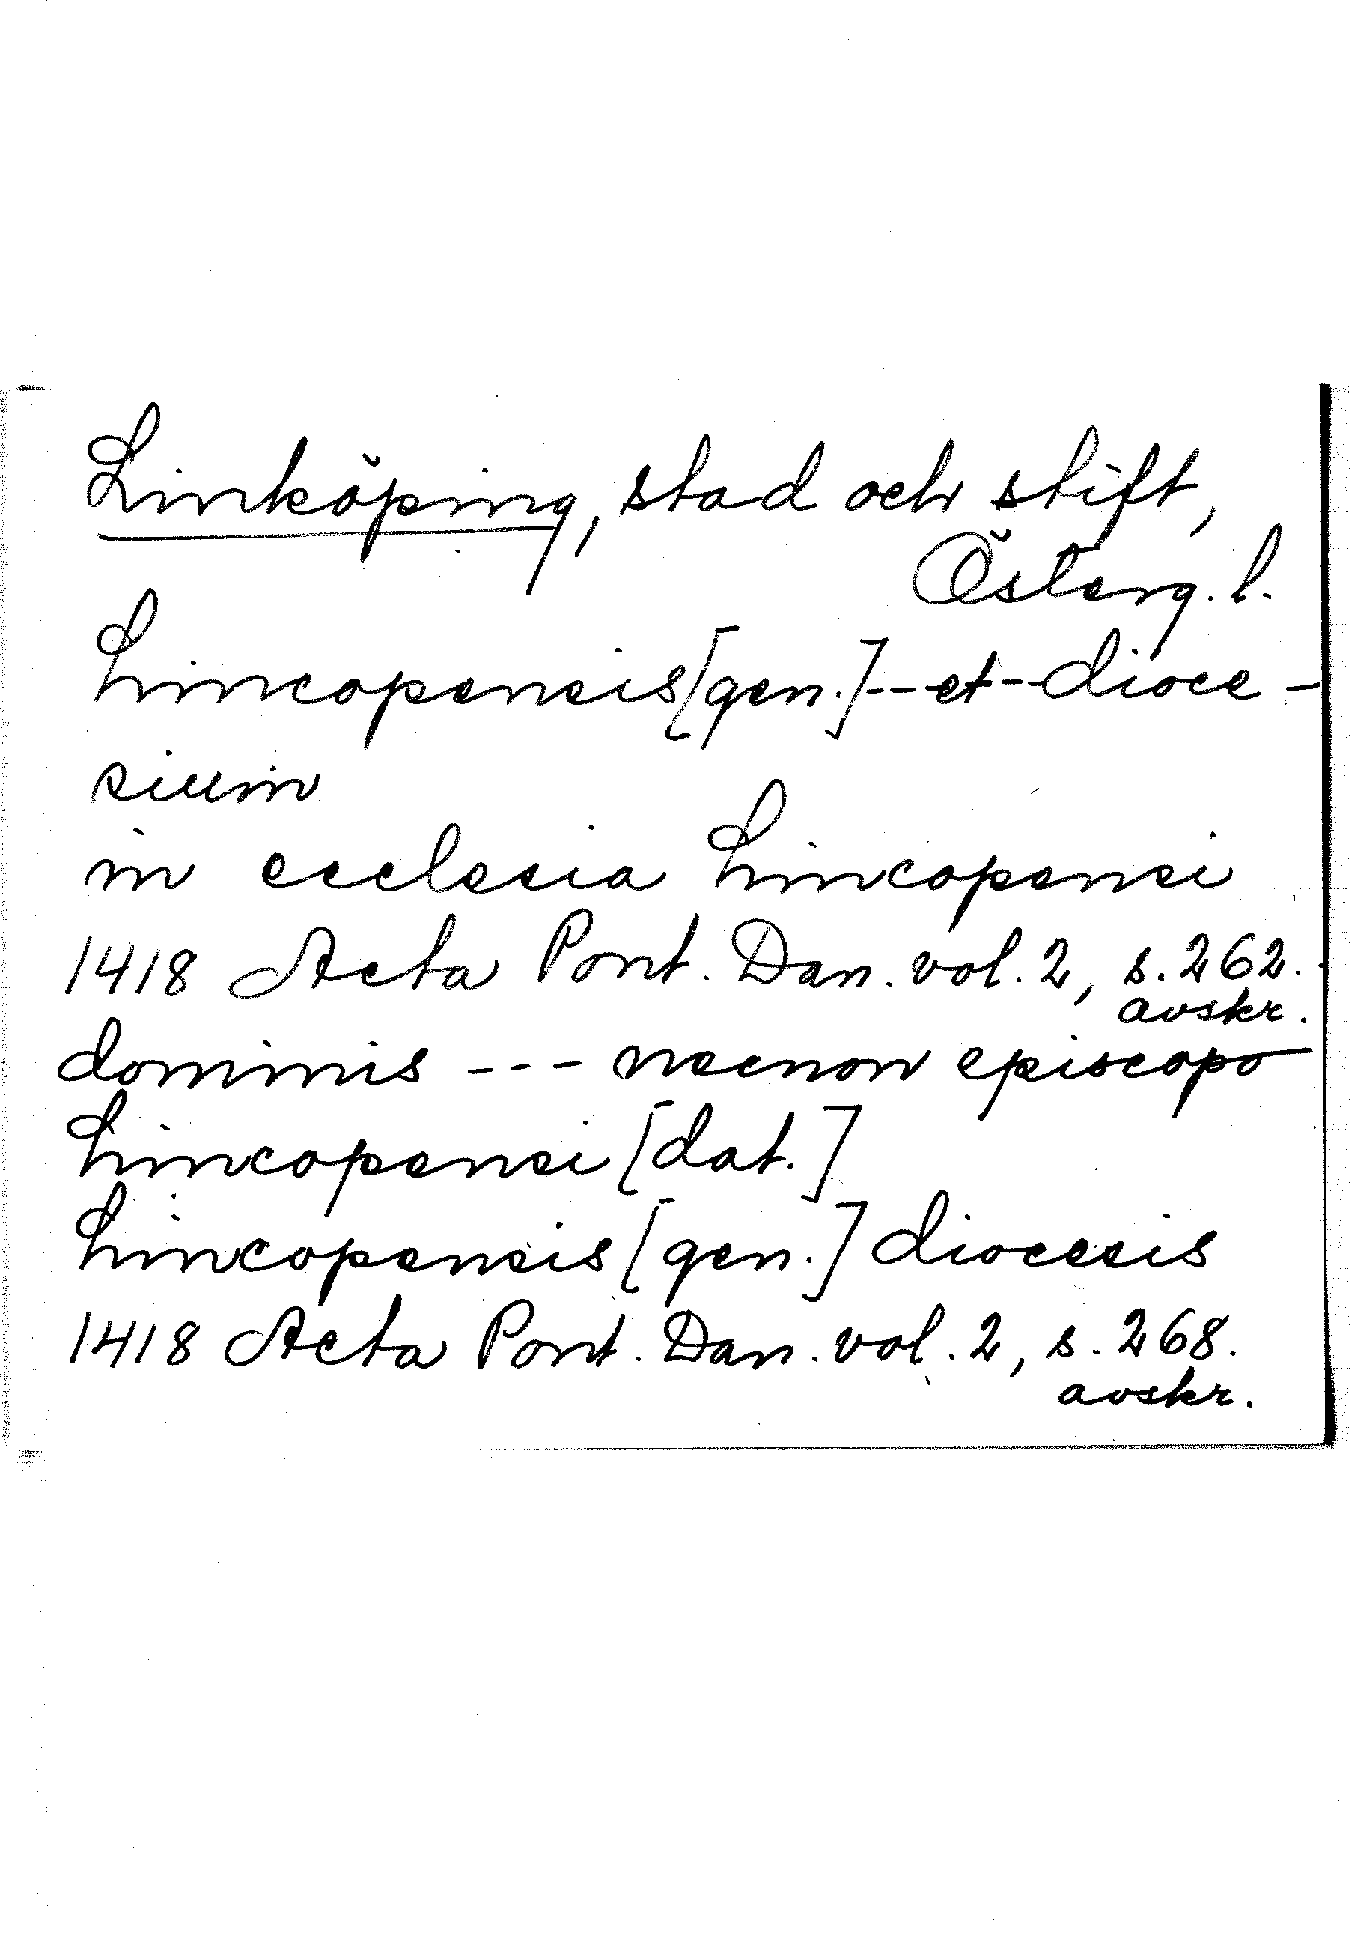 Linköping, stad och stift,
Österg. l.
Lincopensis [gen.] -- et -- dioce-
sium
in ecclesia Lincopensi
1418 Acta Pont. Dan. vol. 2, s. 262.
avskr.
dominis --- necnon episcopo
Lincopensi [dat.]
Lincopensis [gen.] diocesis
1418 Acta Pont. Dan. vol. 2, s. 268.
avskr.